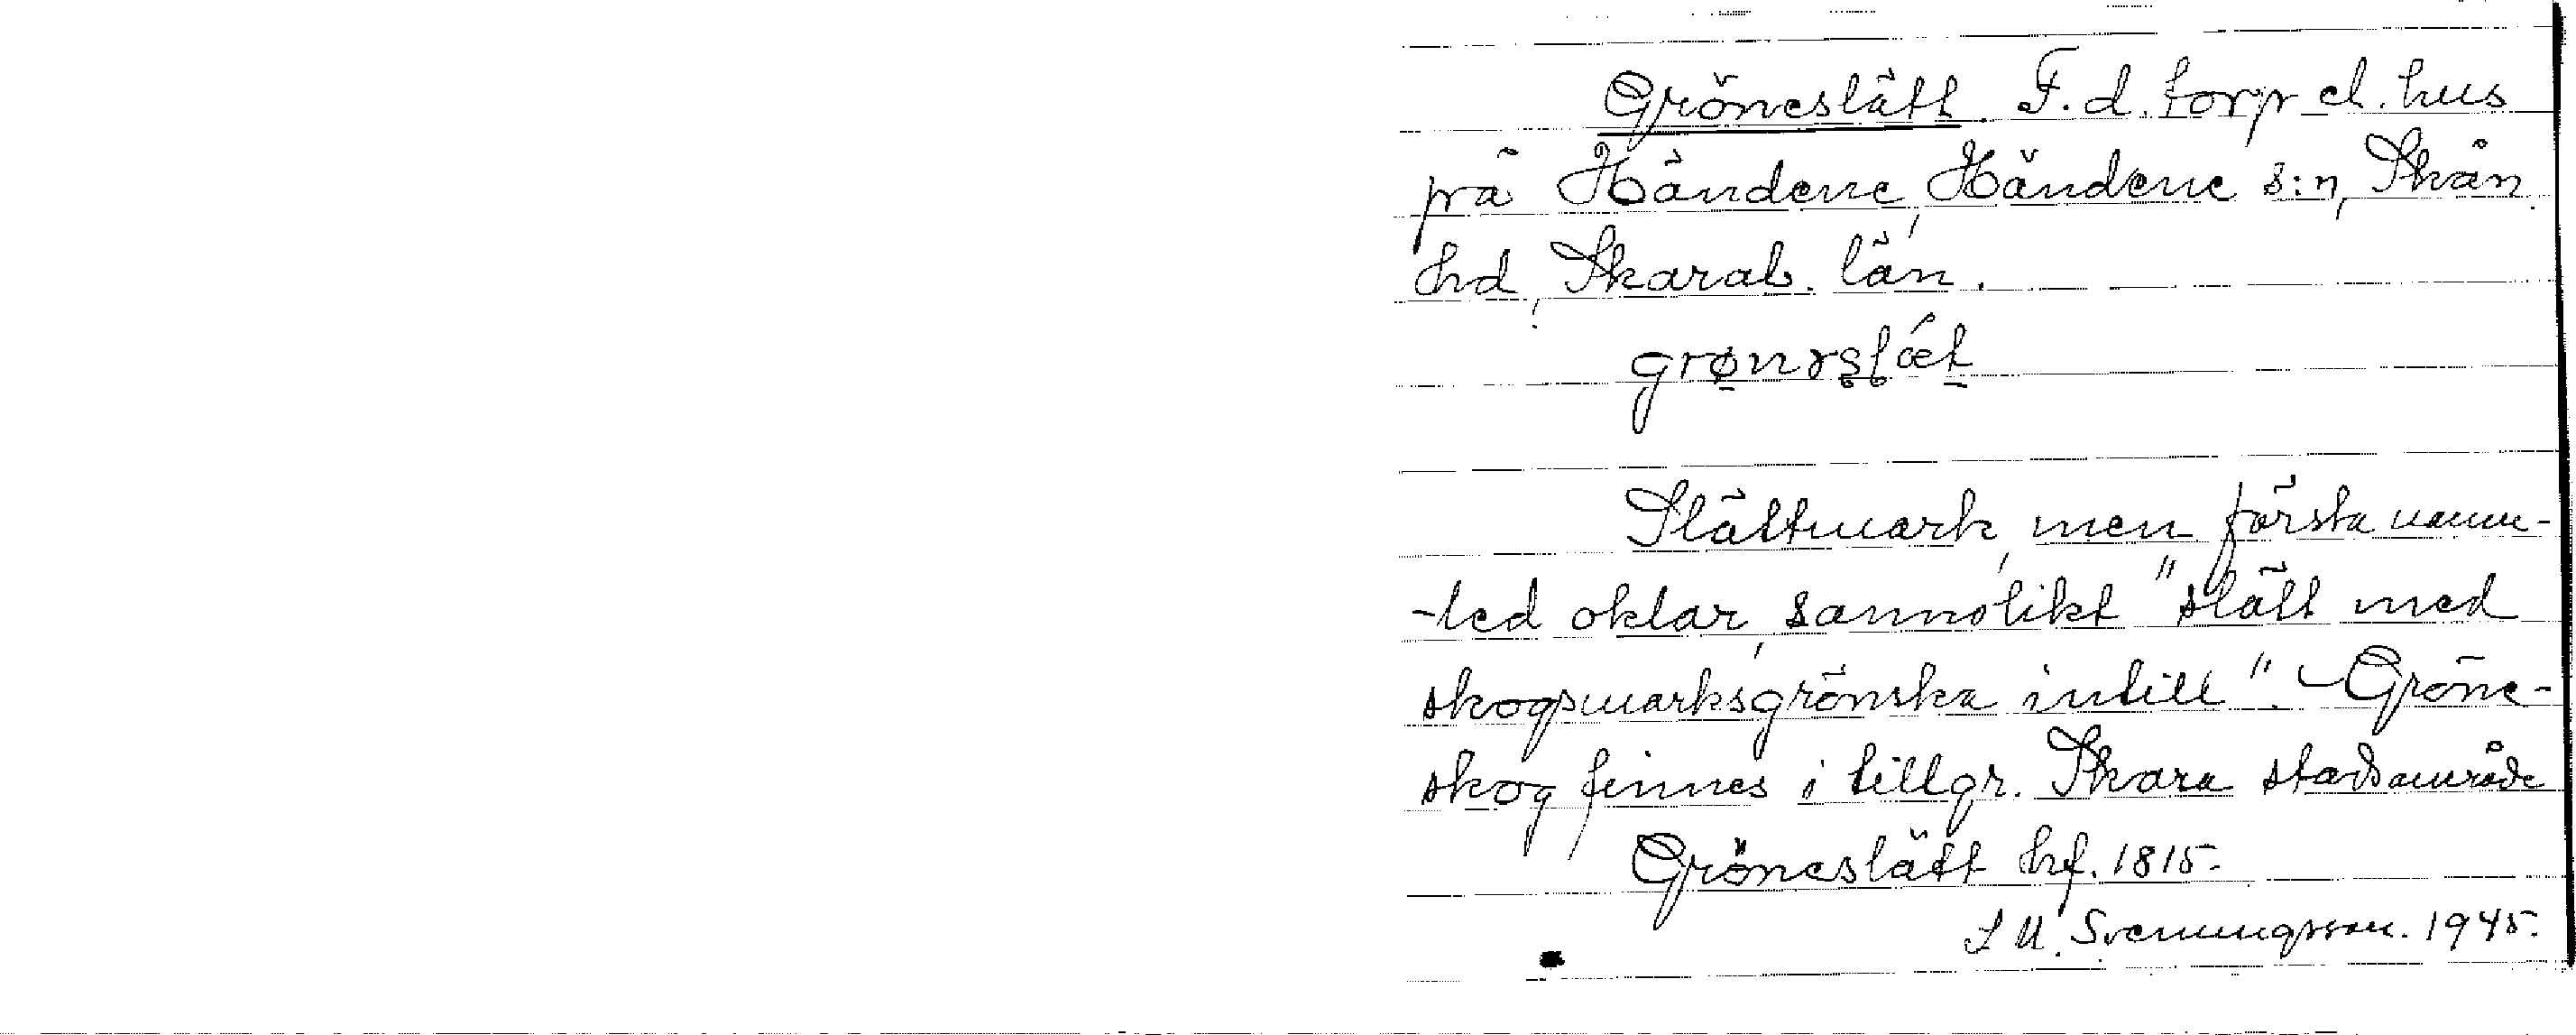 Gröneslätt. F. d. torp el. hus
på Händene, Händene s:n, Skån.
hd, Skarab. län.
grønɤslǽt
Slättmark, men första namn-
-led oklar, sannolikt "slätt med
skogsmarksgrönska intill". Gröne-
skog finnes i tillgr. Skara stadsområde
Gröneslätt hf. 1815.
S U. Svenungsson. 1945.